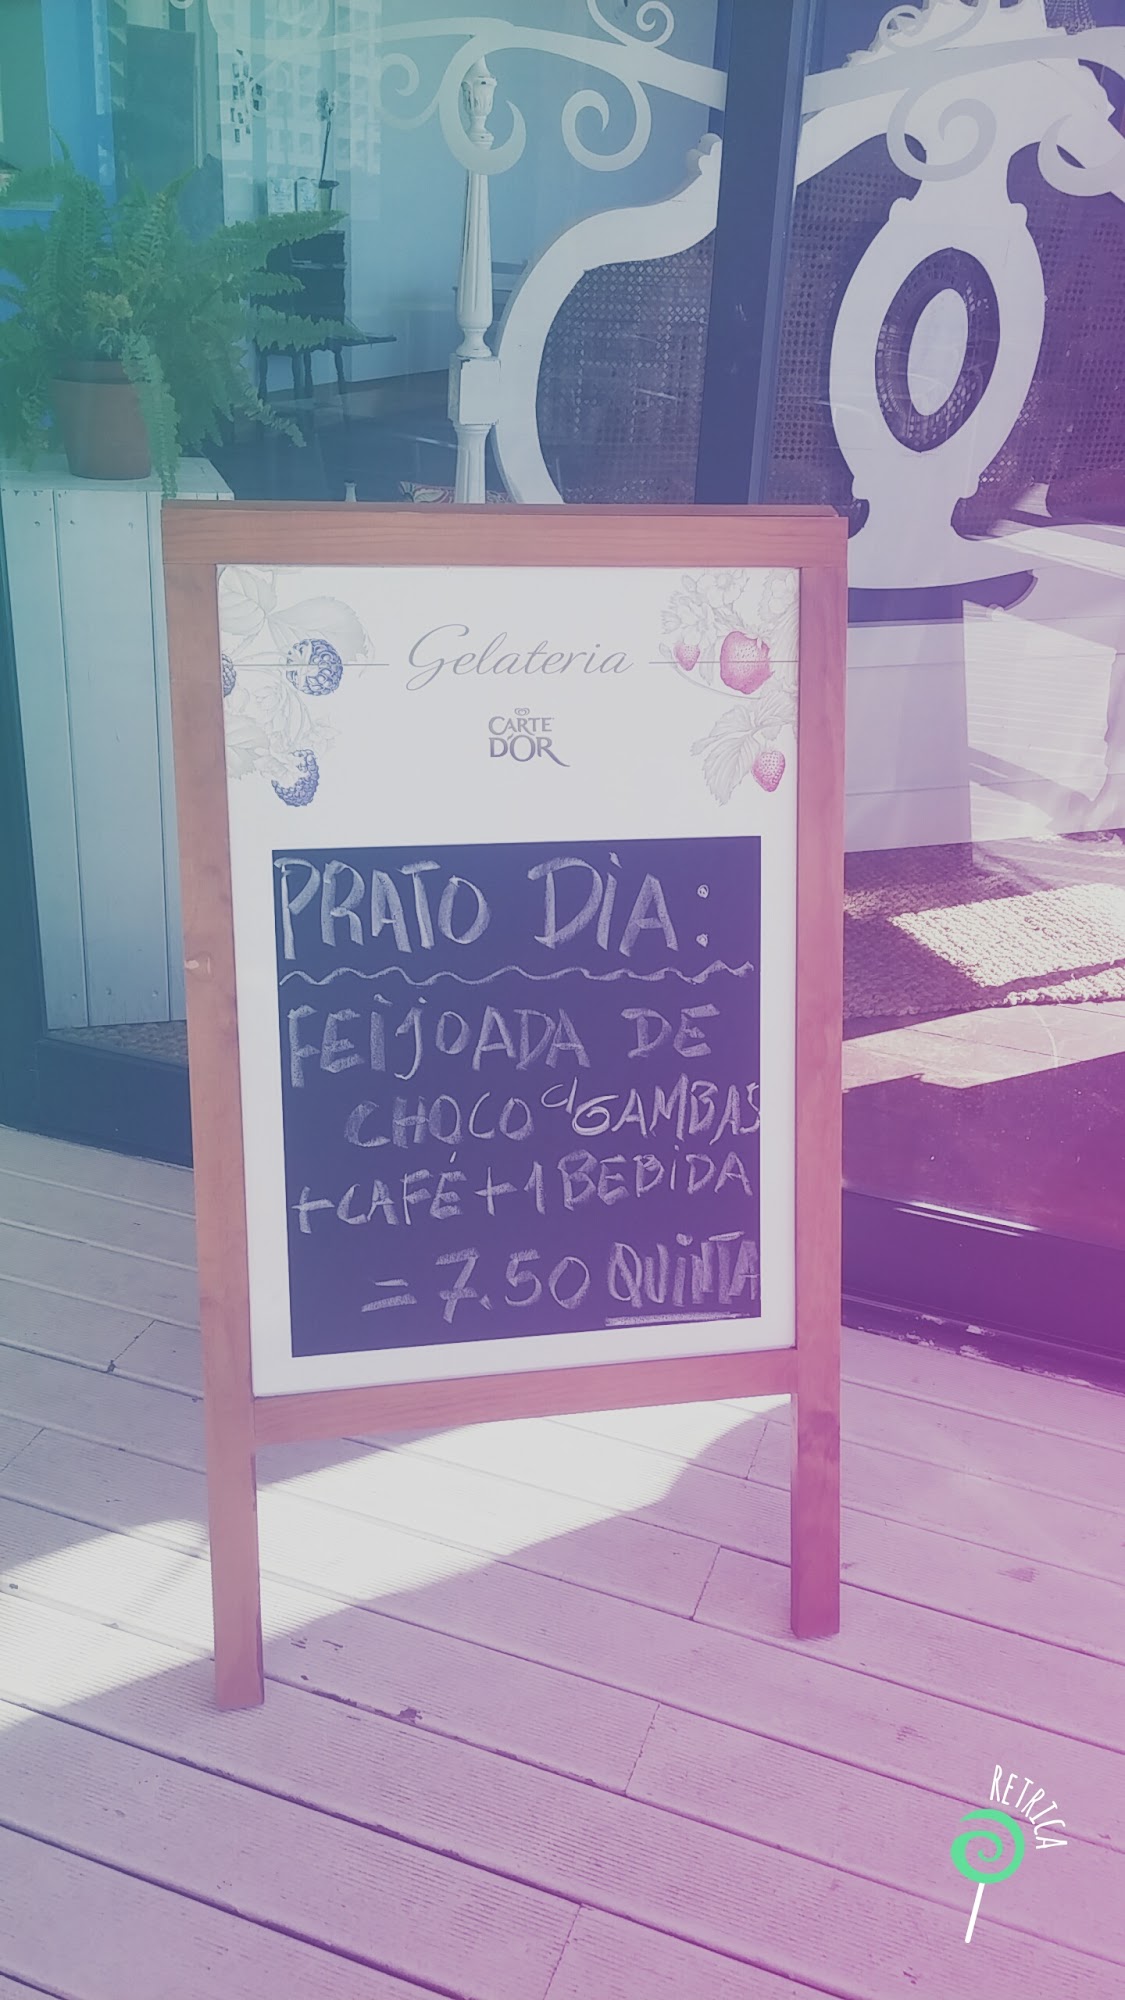 Gelateria
CARTE
D'OR
PRATO DIA:
FEIJOADA DE
CHOCO c/GAMBAS
+CAFÉ+1BEBIDA
=7.50 QUINTA
RETRICA